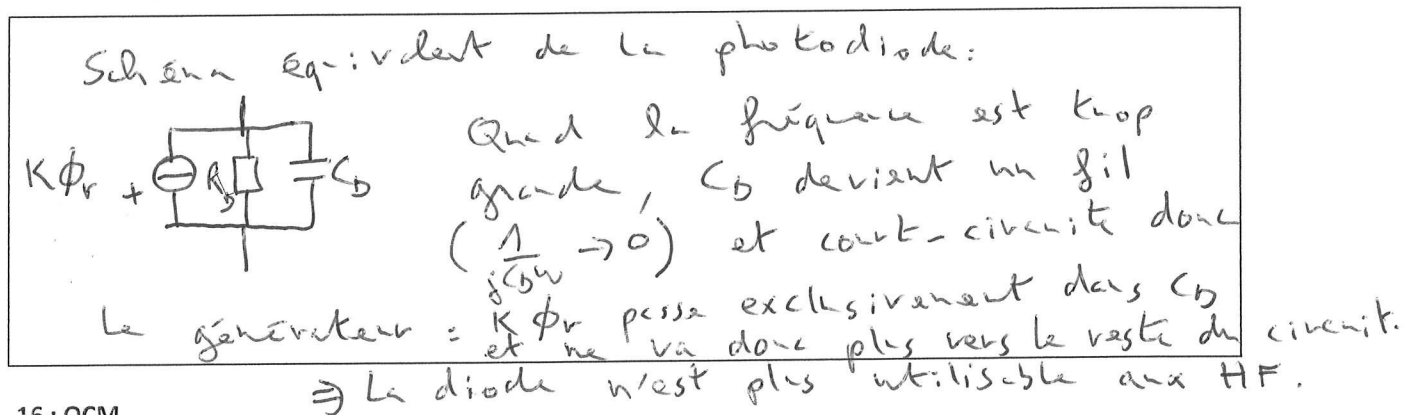 Schéma équivalent de la photodiode:
Quand la fréquence est trop
KΦr + RD CD grande, CD devient un fil
(1/jCDω → 0) et court-circuite donc
le générateur : KΦr passe exclusivement dans CD
et ne va donc plus vers le reste du circuit.
⇒ La diode n'est plus utilisable aux HF.
16 : QCM